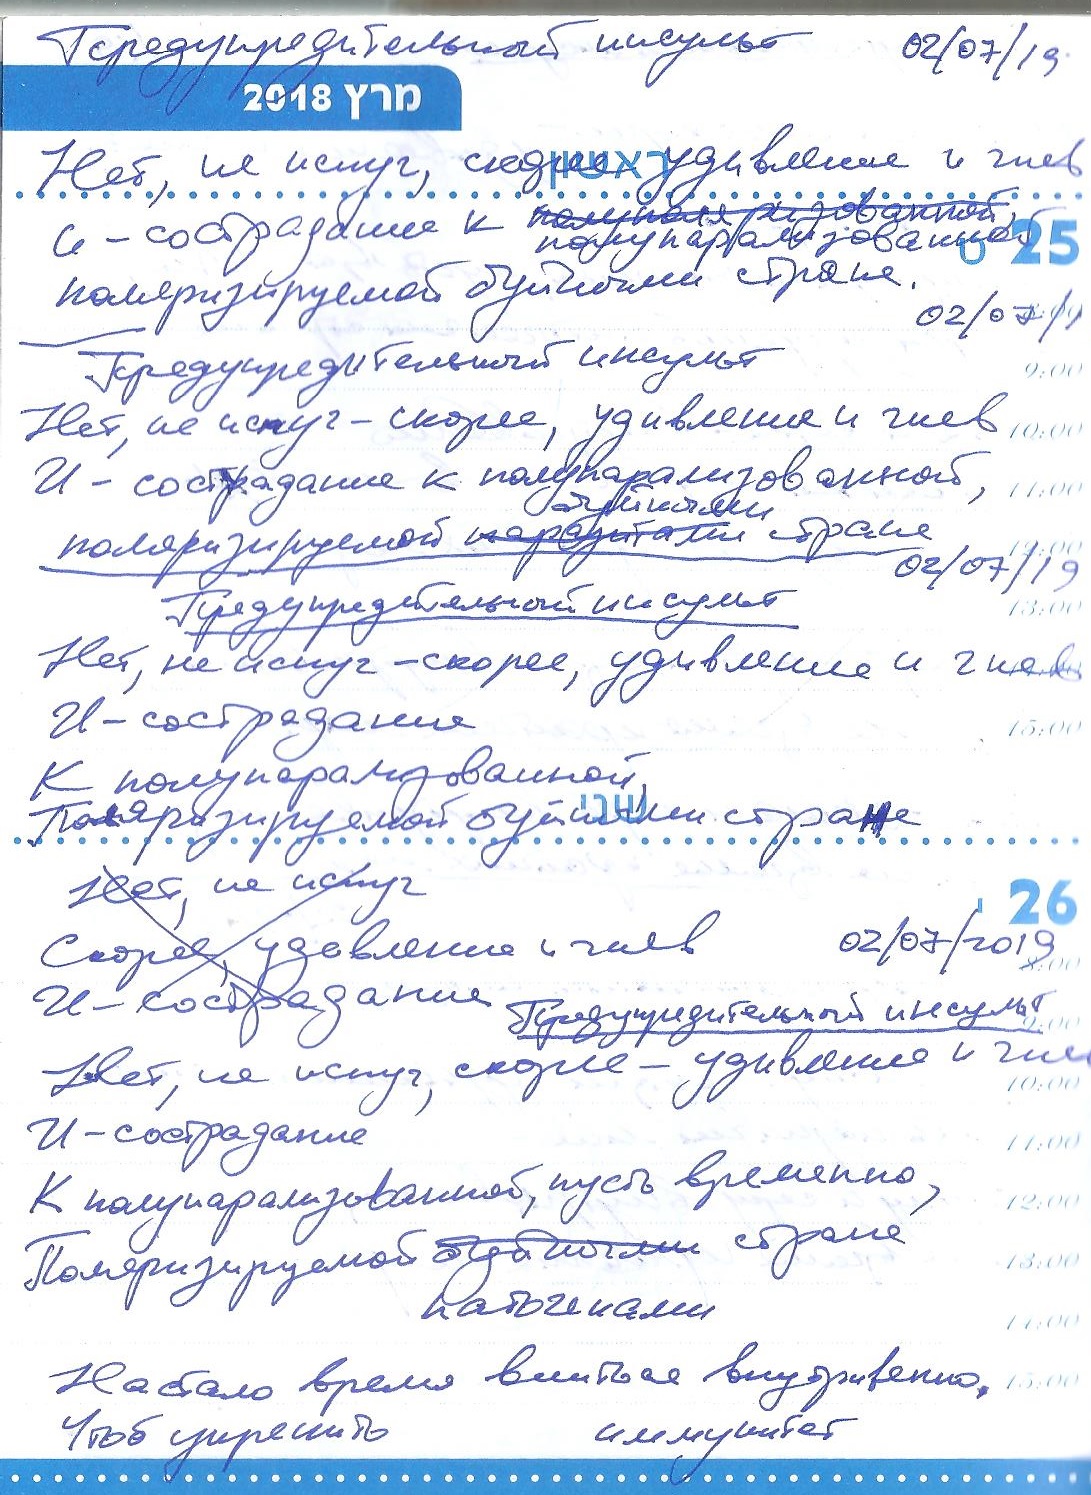 Предупредительный инсульт 02/07/19
מרץ 2018
Нет, не испуг, скорее удивление и гнев
ראשון
И – сострадание к полуполяризованной,
полупарализованной
25
поляризируемой буйными стране.
02/07/1
Предупредительный инсульт
9:00
Нет, не испуг – скорее, удивление и гнев
10:00
И – сострадание к полупарализованной,
11:00
буйными
поляризируемой паразитами стране
12:00
02/07/19
Предупредительный инсульт
13:00
Нет, не испуг – скорее, удивление и гнев
И – сострадание
15:00
К полупарализованной,
שני
Поляризируемой буйными стране
Нет, не испуг
26
Скорее, удивление и гнев 02/07/2019
8:00
И – сострадание
Предупредительный инсульт
9:00
Нет, не испуг, скорее – удивление и гнев
10:00
И – сострадание
11:00
К полупарализованной, пусть временно,
12:00
Поляризируемой буйными стране
13:00
патогенами
14:00
Настало время влиться внутривенно,
15:00
Чтоб укрепить иммунитет